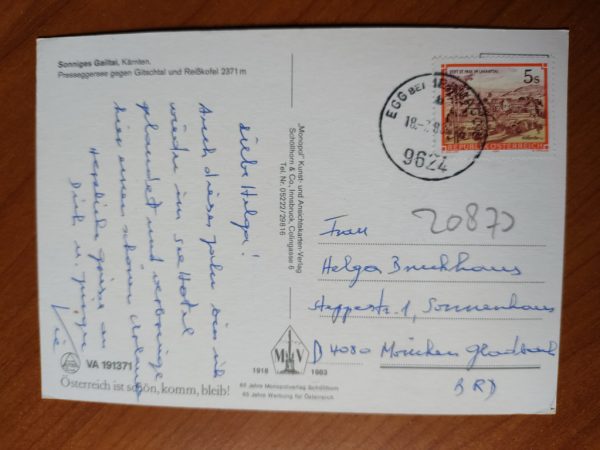 Sonniges Gailtal, Kärnten.
Presseggersee gegen Gitschtal und Reißkofel 2371 m
Liebe Helga!
Auch dieses Jahr bin ich
wieder im See Hotel
gelandet und verbringe
hier einen schönen Urlaub
Herzliche Grüsse an
Dich u. Jürgen
VA 191371
Österreich ist schön, komm, bleib!
„Monopol" Kunst- und Ansichtskarten-Verlag
Schöllhorn & Co., Innsbruck, Colingasse 6
Tel. Nr. 05222/29816
M V
1918 1983
65 Jahre Monopolverlag Schöllhorn
65 Jahre Werbung für Österreich
STIFT ST. PAUL IM LAVANTTAL
5s
REPUBLIK ÖSTERREICH
EGG BEI
9624
20873
Frau
Helga Bruckhaus
1, Sonnenhaus
D 4080 München Gladbach
BRD